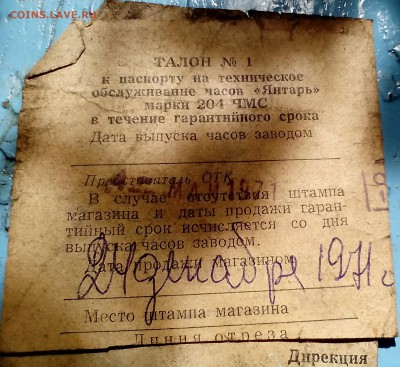 COINS.LAVE.RU
ТАЛОН № 1
к паспорту на техническое
обслуживание часов «Янтарь»
марки 204 ЧМС
в течение гарантийного срока
Дата выпуска часов заводом
Представитель ОТК
МАЙ 1971
В случае отсутствия штампа
магазина и даты продажи гаран-
тийный срок исчисляется со дня
выпуска часов заводом.
Дата продажи магазином
24 декабре 1971 г
Место штампа магазина
Линия отреза
Дирекция